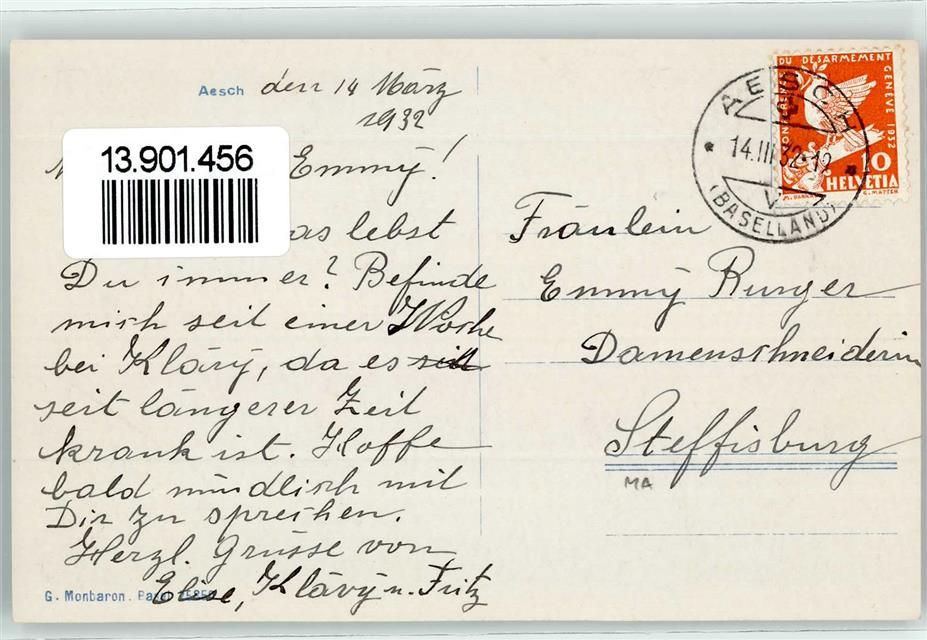 Aesch den 14 März
1932
13.901.456
Emmy!
as lebst
Du immer? Befinde
mich seit einer Woche
bei Kläry, da es seit
seit längerer Zeit
krank ist. Hoffe
bald mündlich mit
Dir zu sprechen.
Herzl. Grüsse von
Elise, Kläry u. Fritz
G. Monbaron. Basel
AESCH
14.III.32-12
(BASELLAND)
CONFERENCE DU DESARMEMENT GENEVE 1932
10
HELVETIA
Fräulein
Emmy Runger
Damenschneiderin
Steffisburg
MA